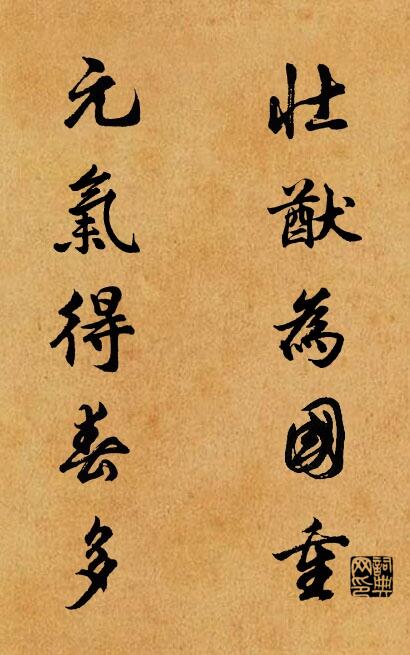 壯猷為國重
元氣得春多
詞典网印